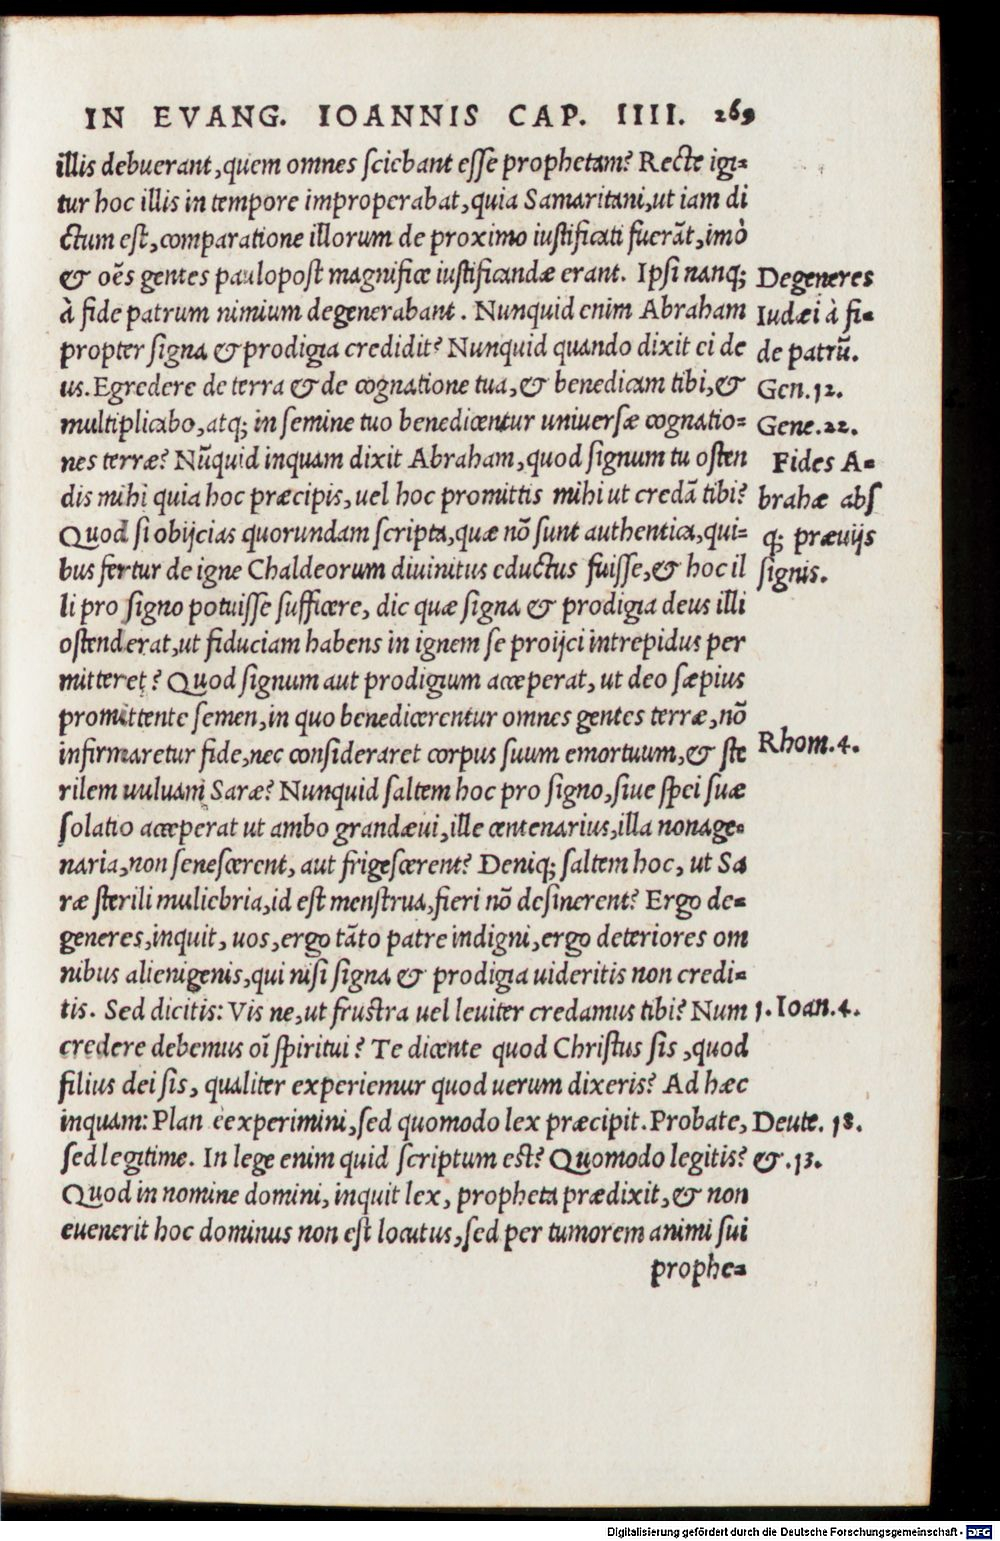 IN EVANG. IOANNIS CAP. IIII. 269
illis debuerant, quem omnes sciebant esse prophetam? Recte igi=
tur hoc illis in tempore improperabat, quia Samaritani, ut iam di
ctum est, comparatione illorum de proximo iustificati fuerāt, imò
& oēs gentes paulopost magnifice iustificandæ erant. Ipsi nanq;
à fide patrum nimium degenerabant. Nunquid enim Abraham
propter signa & prodigia credidit? Nunquid quando dixit ei de
us. Egredere de terra & de cognatione tua, & benedicam tibi, &
multiplicabo, atq; in semine tuo benedicentur uniuersæ cognatio=
nes terræ? Nūquid inquam dixit Abraham, quod signum tu osten
dis mihi quia hoc præcipis, uel hoc promittis mihi ut credā tibi?
Quod si obijcias quorundam scripta, quæ nō sunt authentica, qui=
bus fertur de igne Chaldeorum diuinitus eductus fuisse, & hoc il
li pro signo potuisse sufficere, dic quæ signa & prodigia deus illi
ostenderat, ut fiduciam habens in ignem se proijci intrepidus per
mitteret? Quod signum aut prodigium acceperat, ut deo sæpius
promittente semen, in quo benedicerentur omnes gentes terræ, nō
infirmaretur fide, nec consideraret corpus suum emortuum, & ste
rilem uuluam Saræ? Nunquid saltem hoc pro signo, siue spei suæ
solatio acceperat ut ambo grandæui, ille centenarius, illa nonage=
naria, non senescerent, aut frigescerent? Deniq; saltem hoc, ut Sa
ræ sterili muliebria, id est menstrua, fieri nō desinerent? Ergo de=
generes, inquit, uos, ergo tāto patre indigni, ergo deteriores om
nibus alienigenis, qui nisi signa & prodigia uideritis non credi=
tis. Sed dicitis: Vis ne, ut frustra uel leuiter credamus tibi? Num
credere debemus oī spiritui? Te dicente quod Christus sis, quod
filius dei sis, qualiter experiemur quod uerum dixeris? Ad hæc
inquam: Plan eexperimini, sed quomodo lex præcipit. Probate,
sed legitime. In lege enim quid scriptum est? Quomodo legitis?
Quod in nomine domini, inquit lex, propheta prædixit, & non
euenerit hoc dominus non est locutus, sed per tumorem animi sui
prophe=
Degeneres
Iudæi à fi=
de patrū.
Gen. 12.
Gene. 22.
Fides A=
brahæ abs
q; præuijs
signis.
Rhom. 4.
1. Ioan. 4.
Deute. 18.
&. 13.
Digitalisierung gefördert durch die Deutsche Forschungsgemeinschaft - DFG